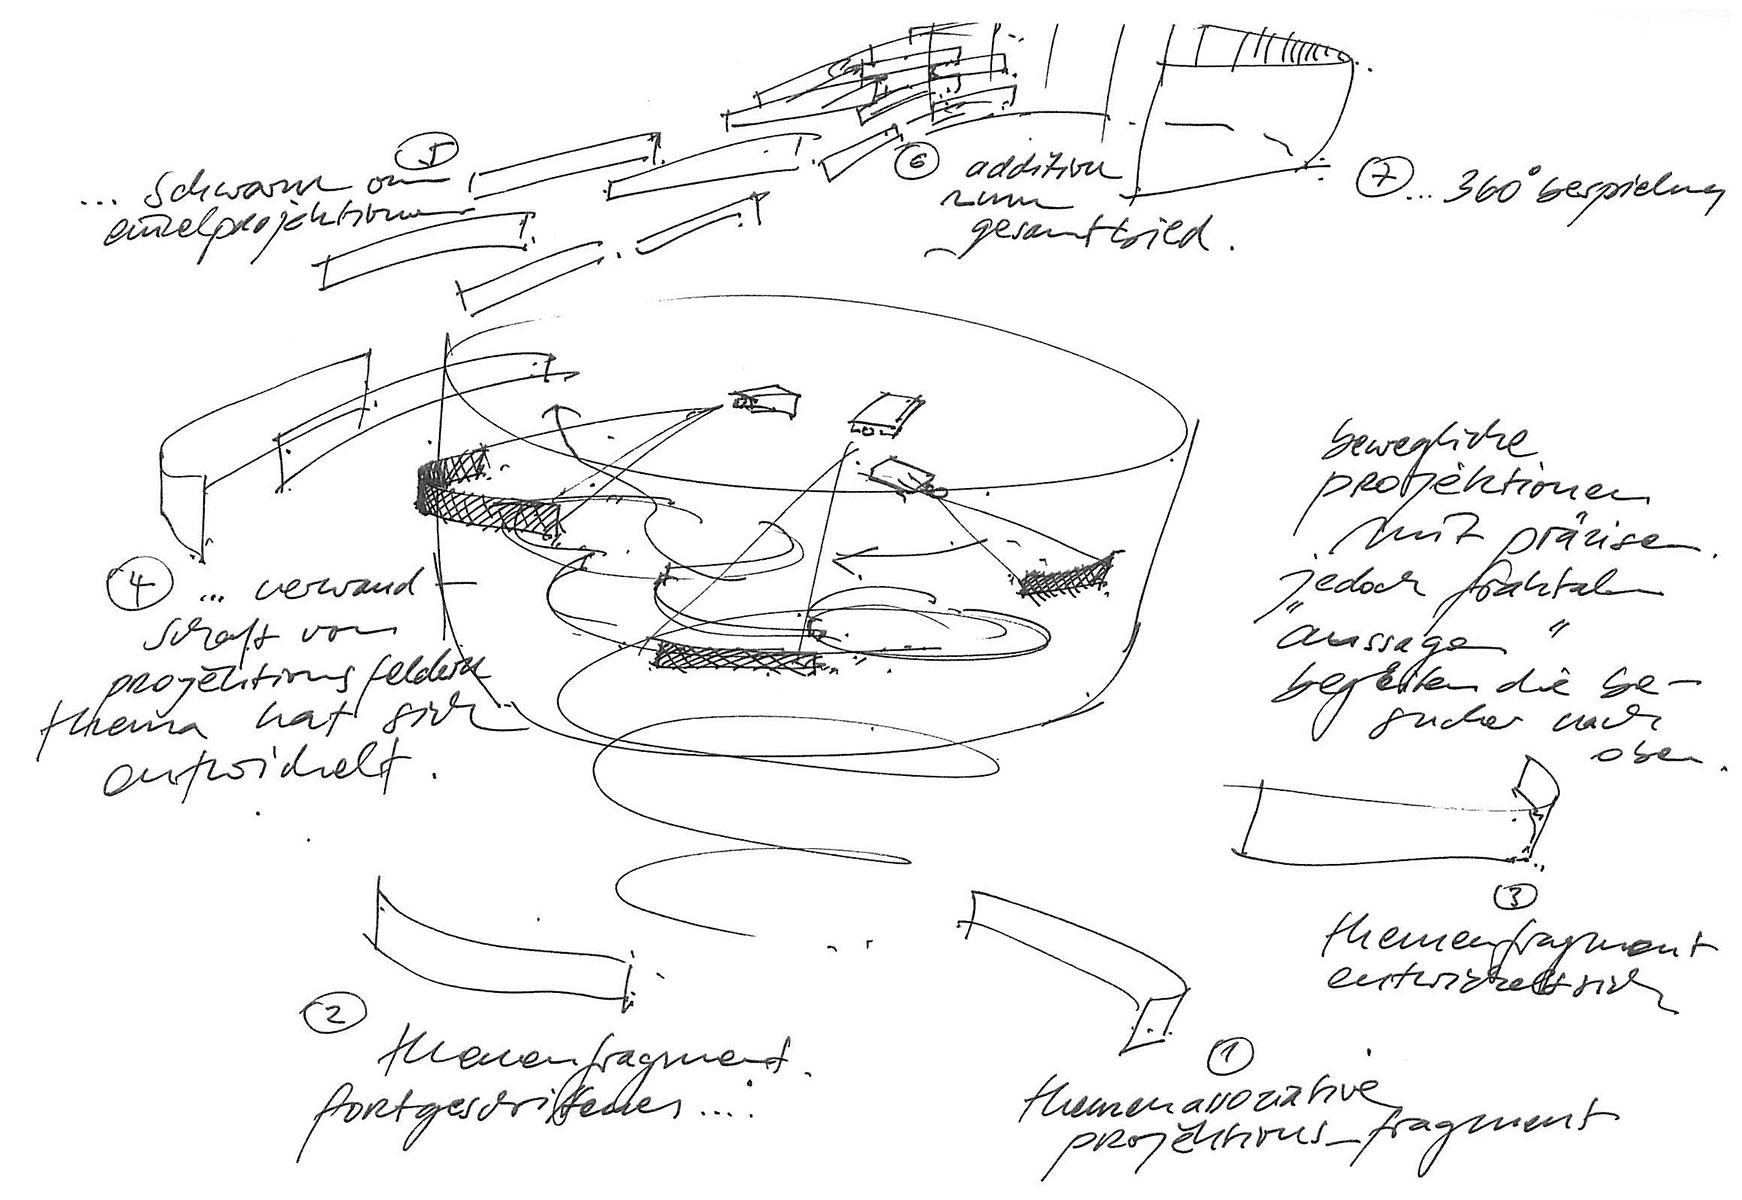 5
... schwarm von
einzelprojektionen
6
addition
zum
gesamtbild.
7 ... 360° bespielung
bewegliche
projektionen
mit "präzisen
jedoch fraktalen
"aussagen"
begleiten die be-
sucher nach
oben.
4 ... verwand
schaft von
projektionsfeldern
thema hat sich
entwickelt.
3
themenfragment
entwickelt sich
2
themenfragment
fortgeschrittenes ....
1
themenassoziative
projektions_fragment